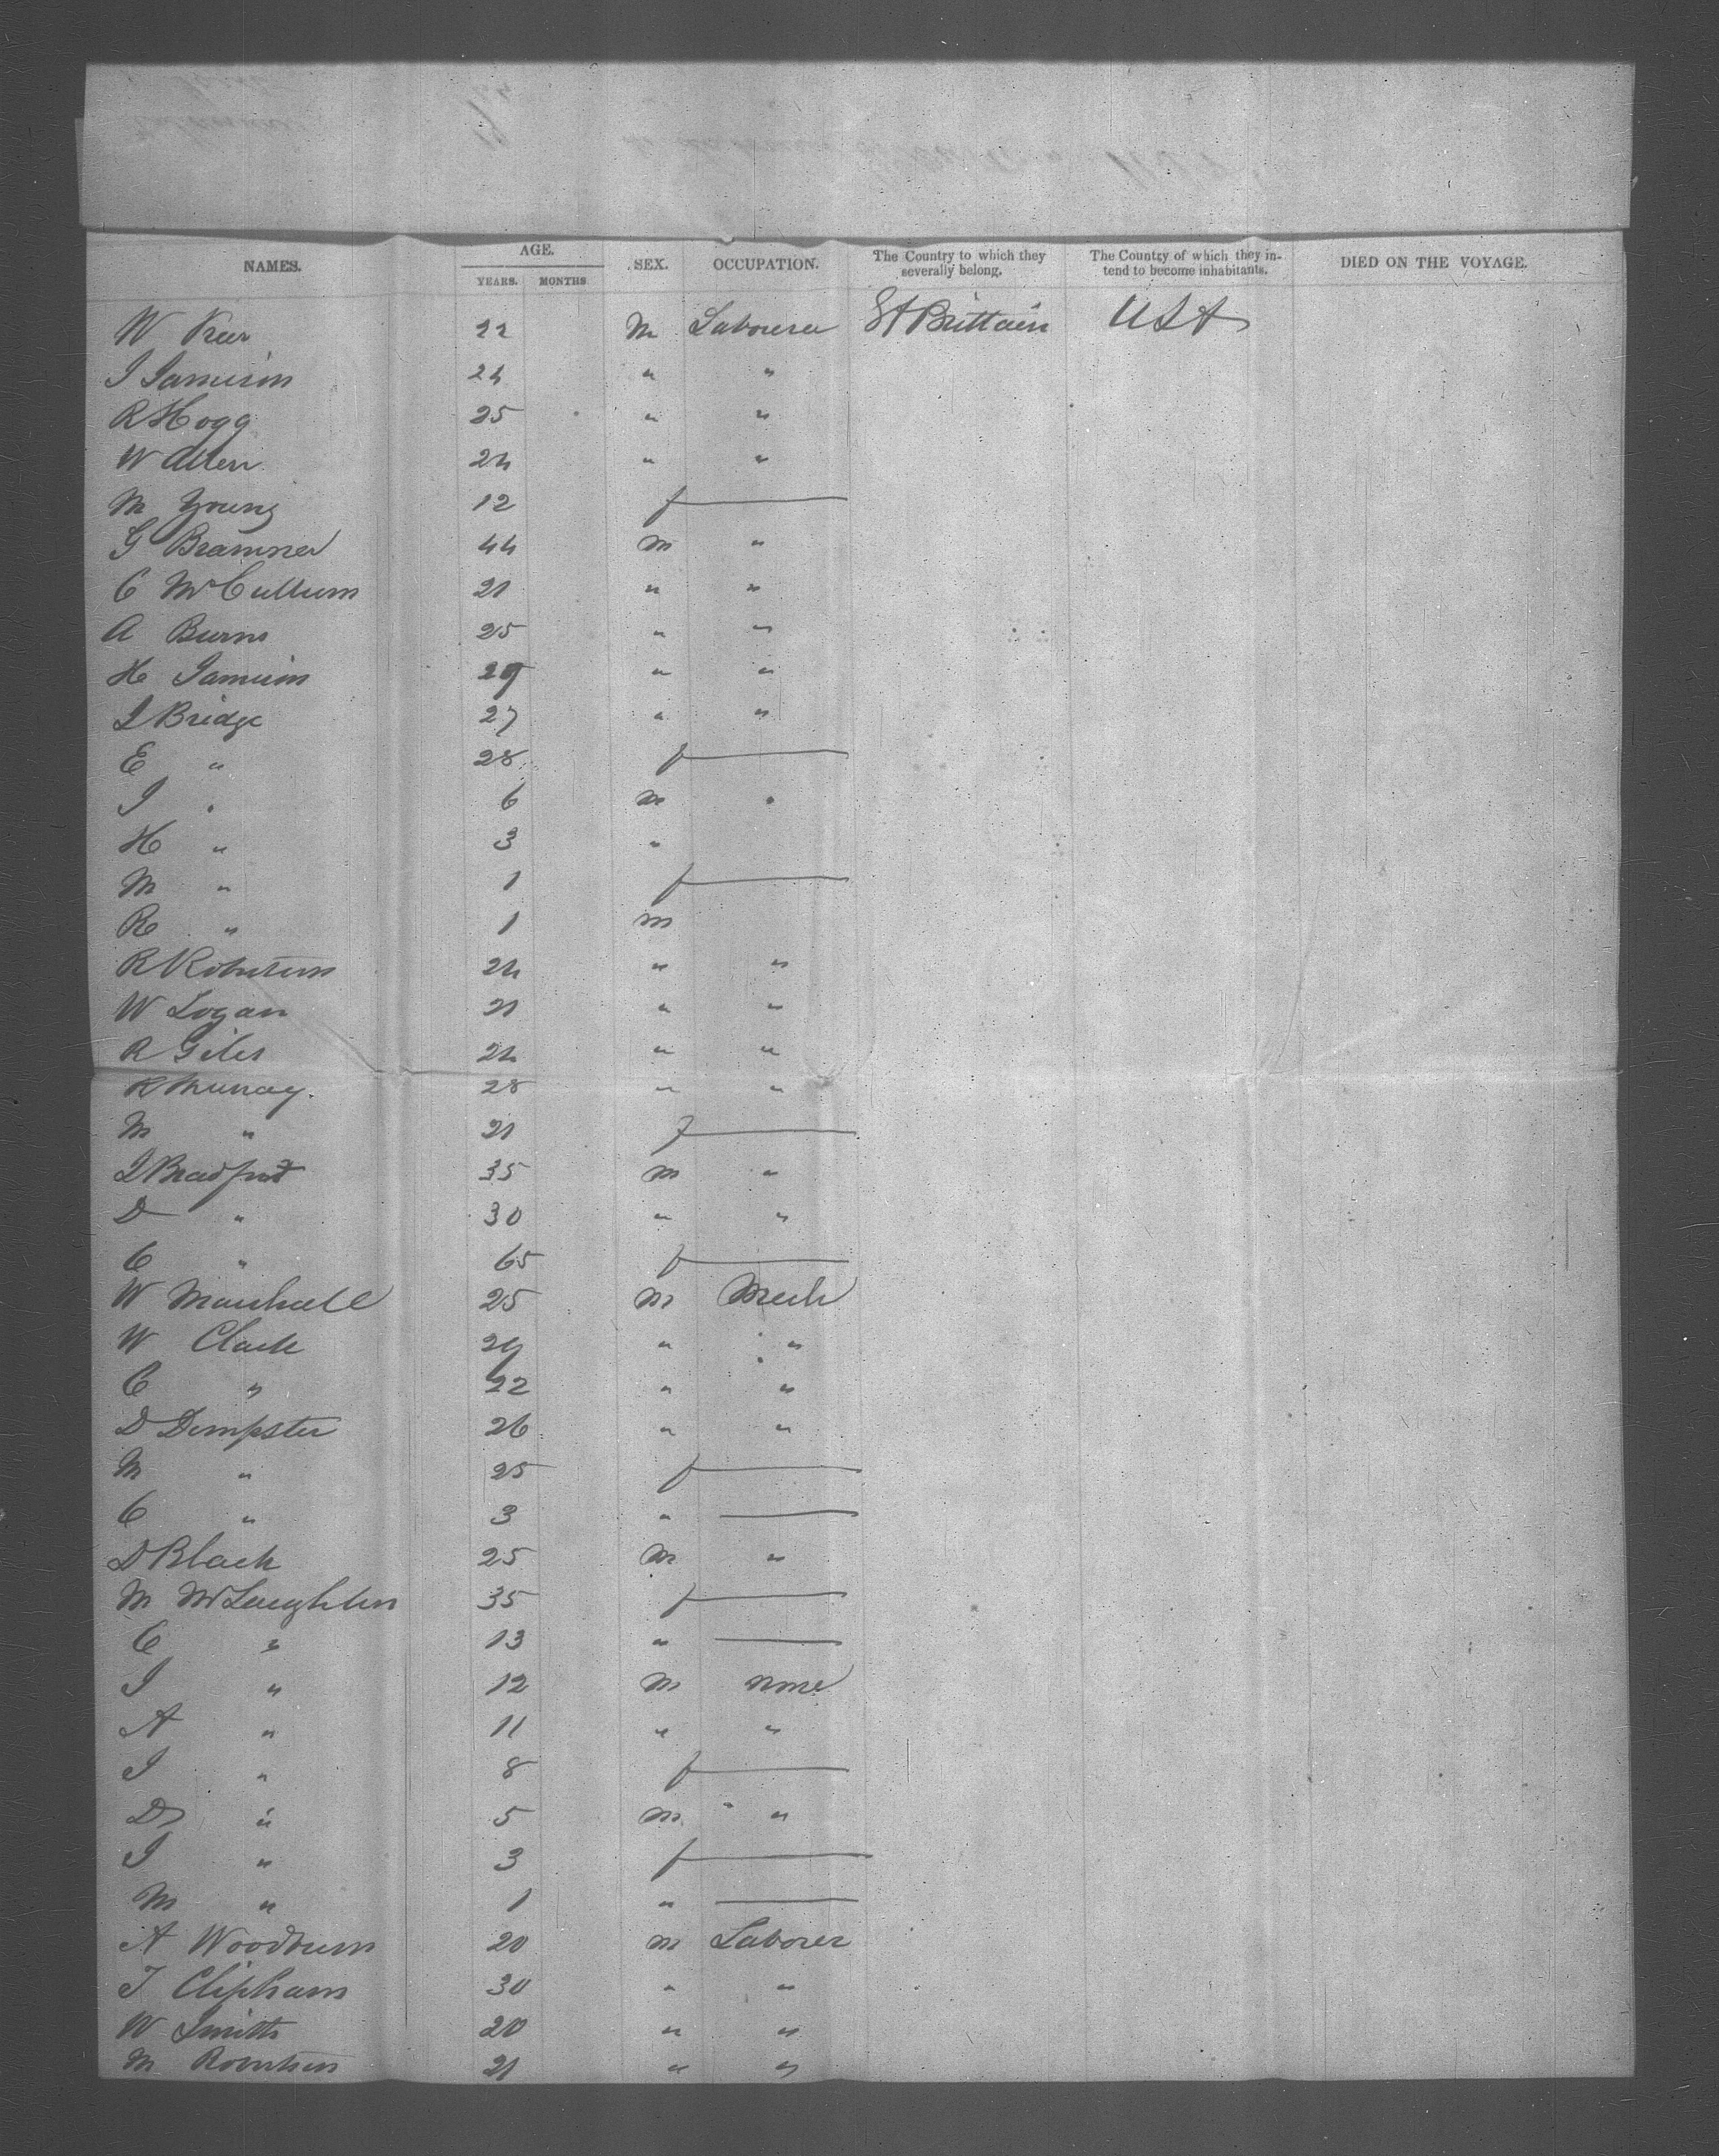 NAMES. AGE. YEARS. MONTHS SEX. OCCUPATION. The Country to which they severally belong. The Country of which they intend to become inhabitants. DIED ON THE VOYAGE.
W Kerr 22 M Labourer Gt Brittain USA
J Jamieson 24 " "
R Hogg 25 " "
W Allen 24 " "
M Young 12 f
G Bramner 44 M "
C McCullum 21 " "
A Burns 25 " "
H Jamieson 29 " "
J Bridge 27 " "
E " 28 f
J " 6 M "
H " 3 "
M " 1 f
R " 1 M
R Robertson 24 " "
W Logan 21 " "
R Giles 24 " "
R Murray. 28 " "
M " 21 f
J Bradfut 35 M "
D " 30 " "
C " 65 f
W Marshall 25 M Mech
W Clark 29 " "
C " 22 " "
D Dempster 26 " "
M " 25 f
C " 3 "
D Black 25 M "
M McLaughlin 35 f
C " 13 "
J " 12 M none
A " 11 " "
J " 8 f
D " 5 M "
J " 3 f
M " 1 "
A Woodburn 20 M Laborer
T Clipham 30 " "
W Smith 20 " "
M Robertson 21 " "